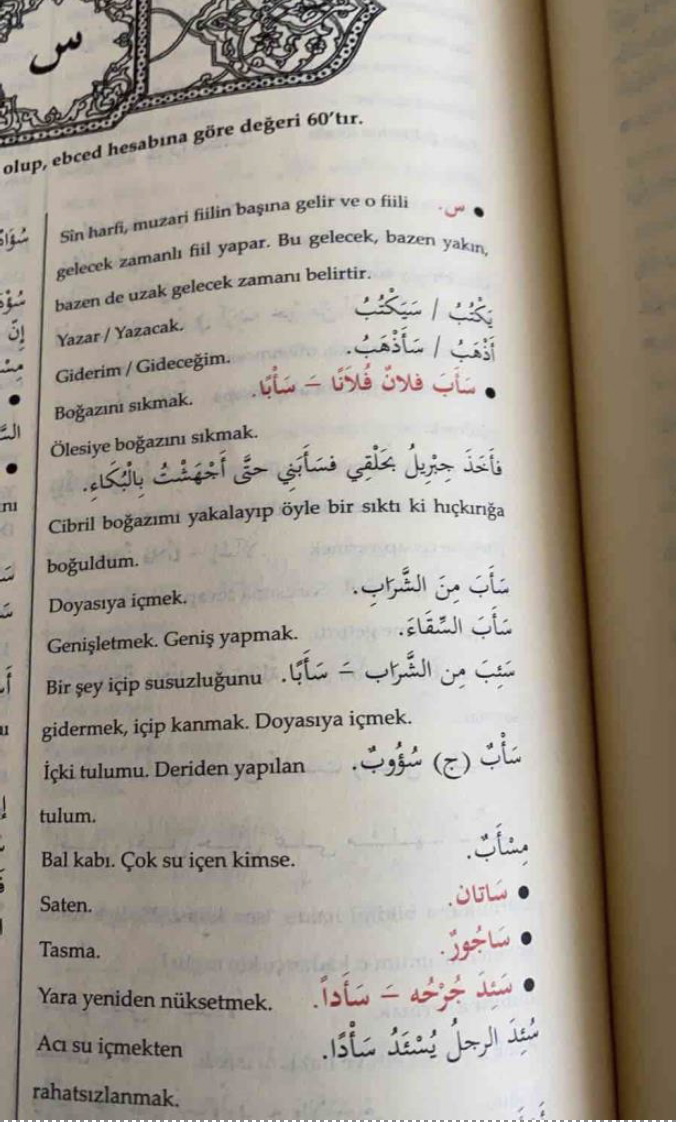 س
olup, ebced hesabına göre değeri 60'tır.
• س. Sîn harfi, muzari fiilin başına gelir ve o fiili
gelecek zamanlı fiil yapar. Bu gelecek, bazen yakın,
bazen de uzak gelecek zamanı belirtir.
يَكْتُبُ / سَيَكْتُبُ Yazar / Yazacak.
أَذْهَبُ / سَأَذْهَبُ. Giderim / Gideceğim.
• سَأَبَ فلانٌ فُلَانًا – سَأْبًا. Boğazını sıkmak.
Ölesiye boğazını sıkmak.
فأَخَذَ جِبْرِيلُ بحَلْقِي فسَأَبَنِي حتَّى أَجْهَشْتُ بِالْبُكَاءِ.
Cibril boğazımı yakalayıp öyle bir sıktı ki hıçkırığa
boğuldum.
سَأَبَ مِنَ الشَّرَابِ. Doyasıya içmek.
سَأَبَ السِّقَاءَ. Genişletmek. Geniş yapmak.
سَئِبَ مِن الشَّراب – سَأَبًا. Bir şey içip susuzluğunu
gidermek, içip kanmak. Doyasıya içmek.
سَأْبٌ (ج) سُؤُوبٌ. İçki tulumu. Deriden yapılan
tulum.
مِسْأَبٌ. Bal kabı. Çok su içen kimse.
• سَاتان. Saten.
• سَاجُورٌ. Tasma.
• سَئِدَ جُرْحُه – سَأَداً. Yara yeniden nüksetmek.
سُئِدَ الرجلُ يُسْئَدُ سَأْدًا. Acı su içmekten
rahatsızlanmak.